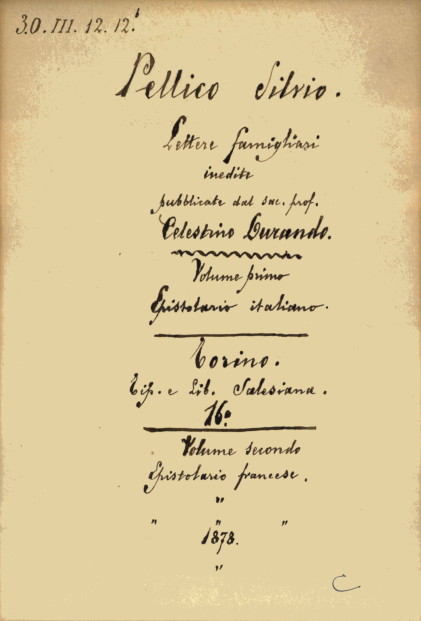 30. III. 12. 12.
Pellico Silvio.
Lettere famigliari
inedite
pubblicate dal sac. prof.
Celestino Durando.
Volume primo
Epistolario italiano.
Torino.
Tip. e Lib. Salesiana.
16.°
Volume secondo
Epistolario francese.
"
" " "
1878.
"
C